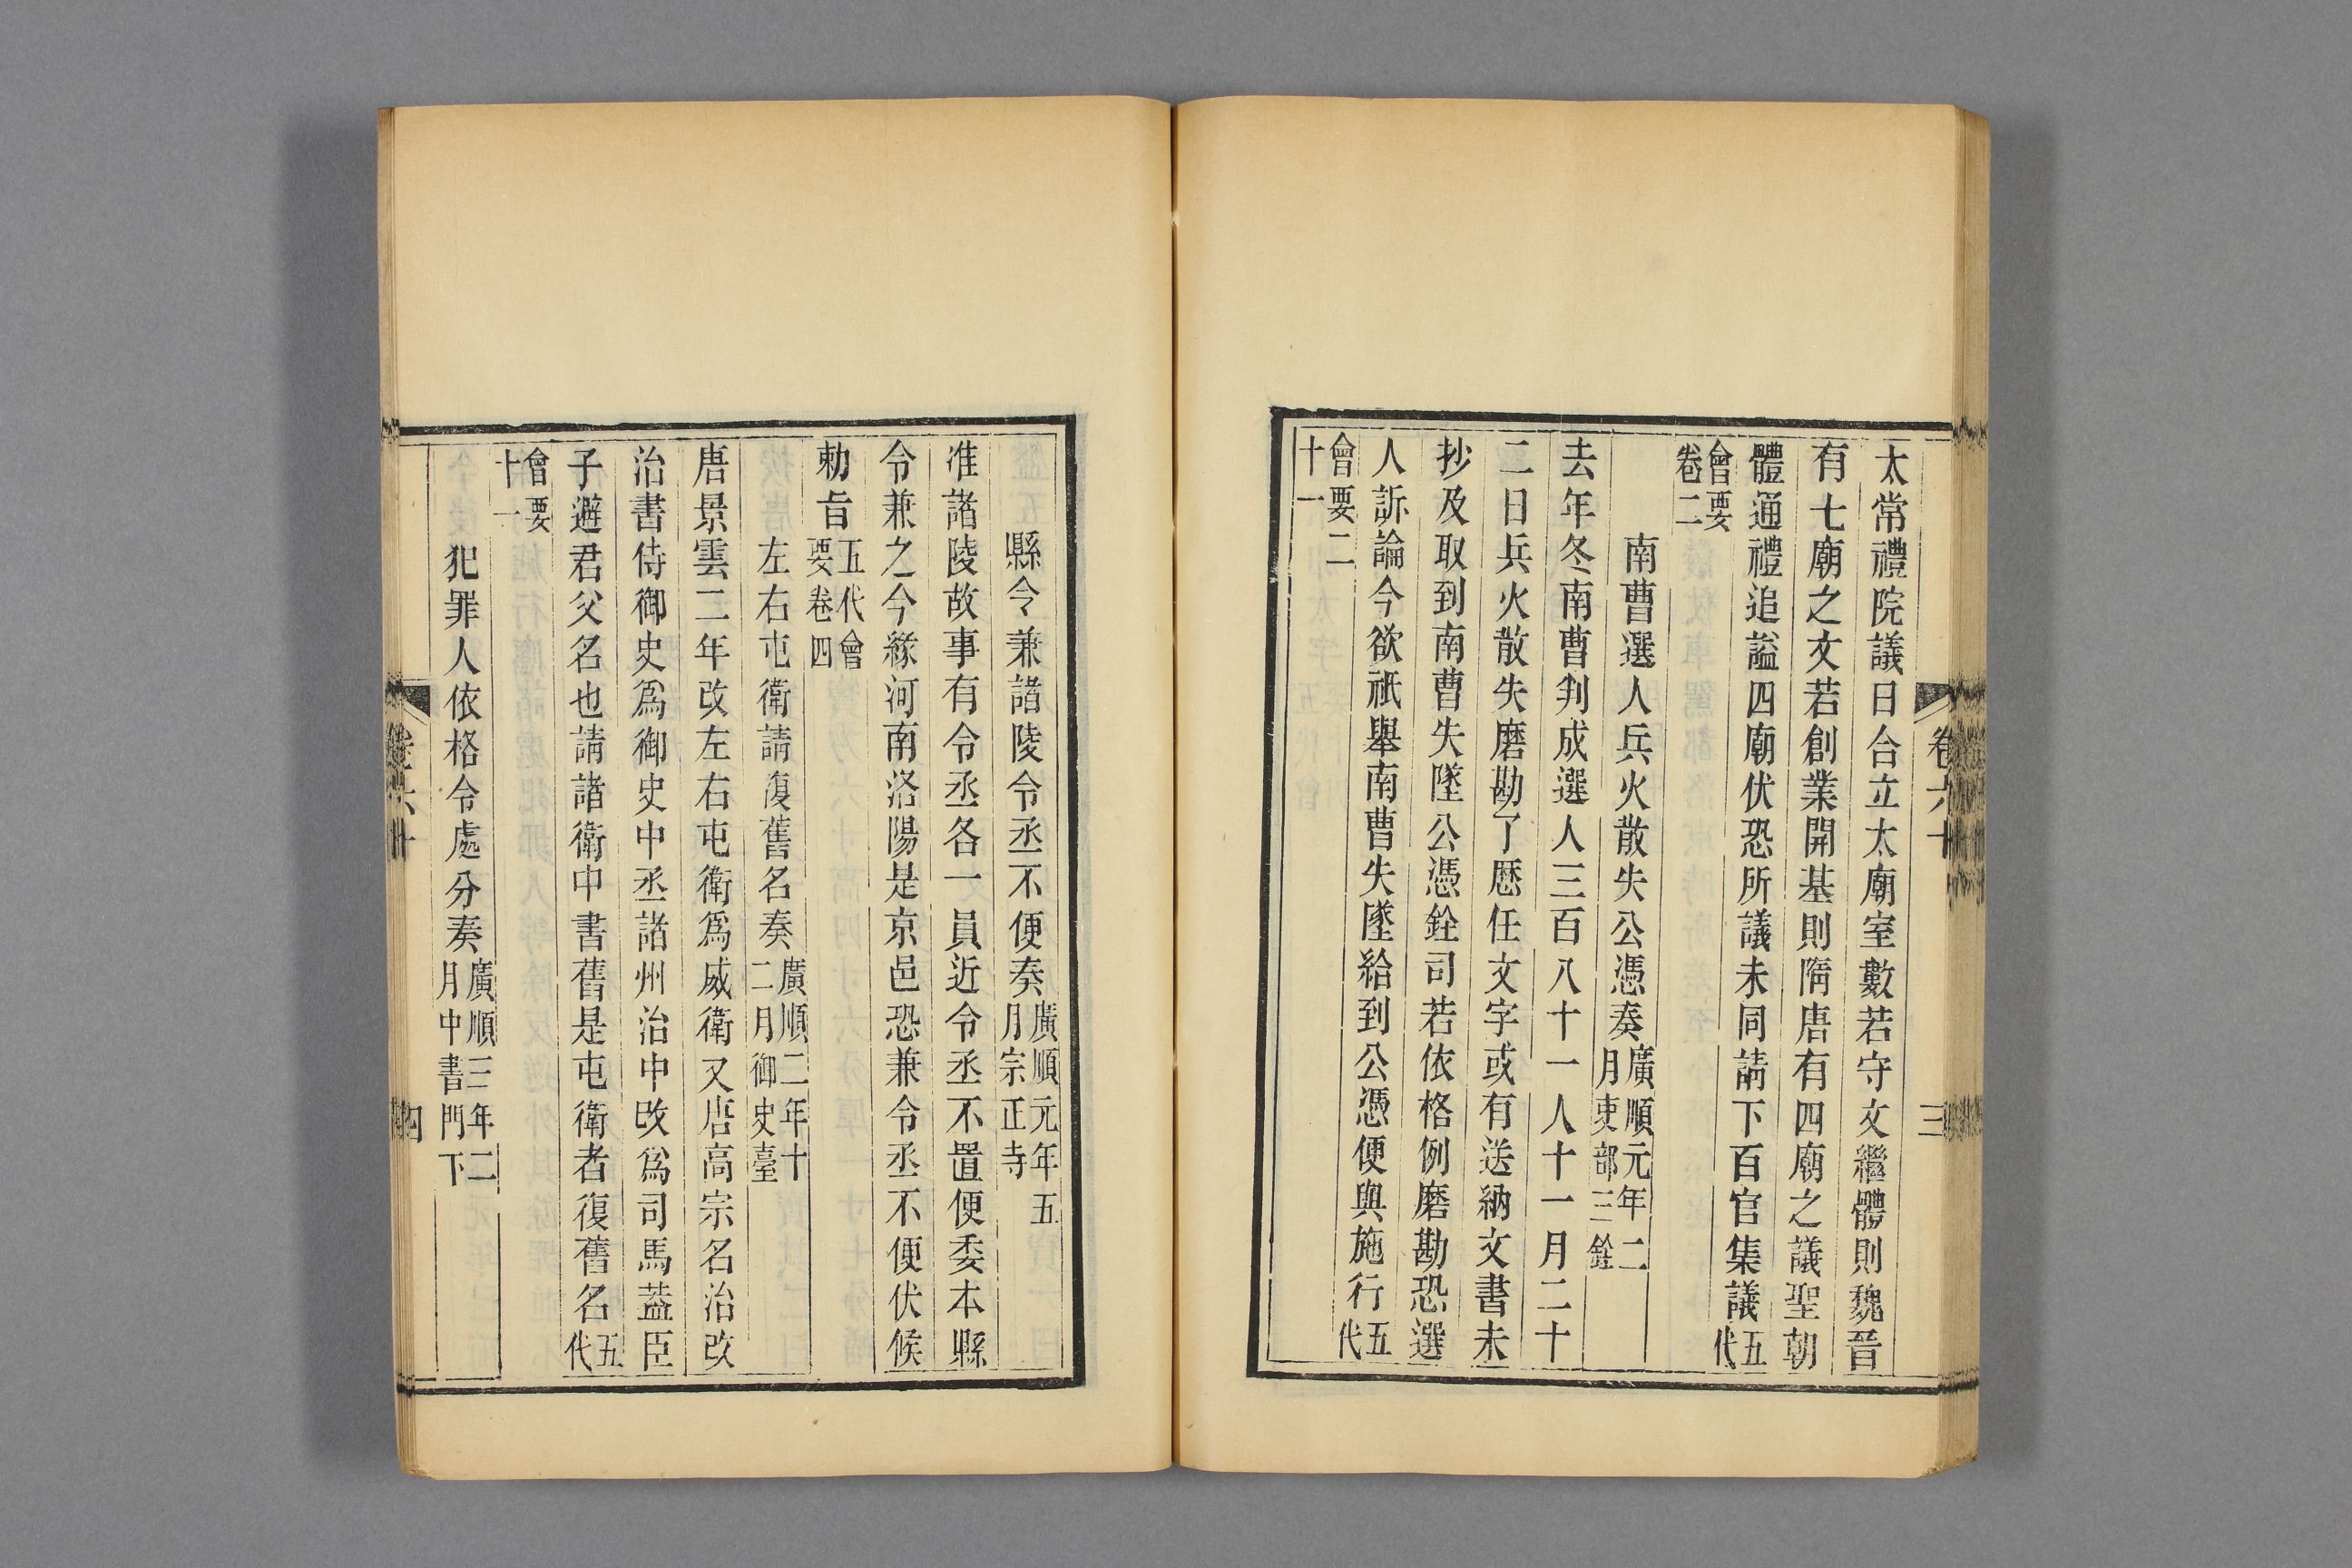 卷六十
三
太常禮院議曰合立太廟室數若守文繼體則魏晉
有七廟之文若創業開基則隋唐有四廟之議聖朝
體通禮追謚四廟伏恐所議未同請下百官集議五代
會要卷二
南曹選人兵火散失公憑奏廣順元年二月吏部三銓
去年冬南曹判成選人三百八十一人十一月二十
二日兵火散失磨勘了歷任文字或有送納文書未
抄及取到南曹失墜公憑銓司若依格例磨勘恐選
人訴論今欲祇舉南曹失墜給到公憑便與施行五代
會要二十一
縣令兼諸陵令丞不便奏廣順元年五月宗正寺
准諸陵故事有令丞各一員近令丞不置便委本縣
令兼之今緣河南洛陽是京邑恐兼令丞不便伏候
勅旨五代會要卷四
左右屯衛請復舊名奏廣順二年十二月御史臺
唐景雲二年改左右屯衛爲威衛又唐高宗名治改
治書侍御史爲御史中丞諸州治中改爲司馬蓋臣
子避君父名也請諸衛中書舊是屯衛者復舊名五代
會要十一
犯罪人依格令處分奏廣順三年二月中書門下
卷六十
四